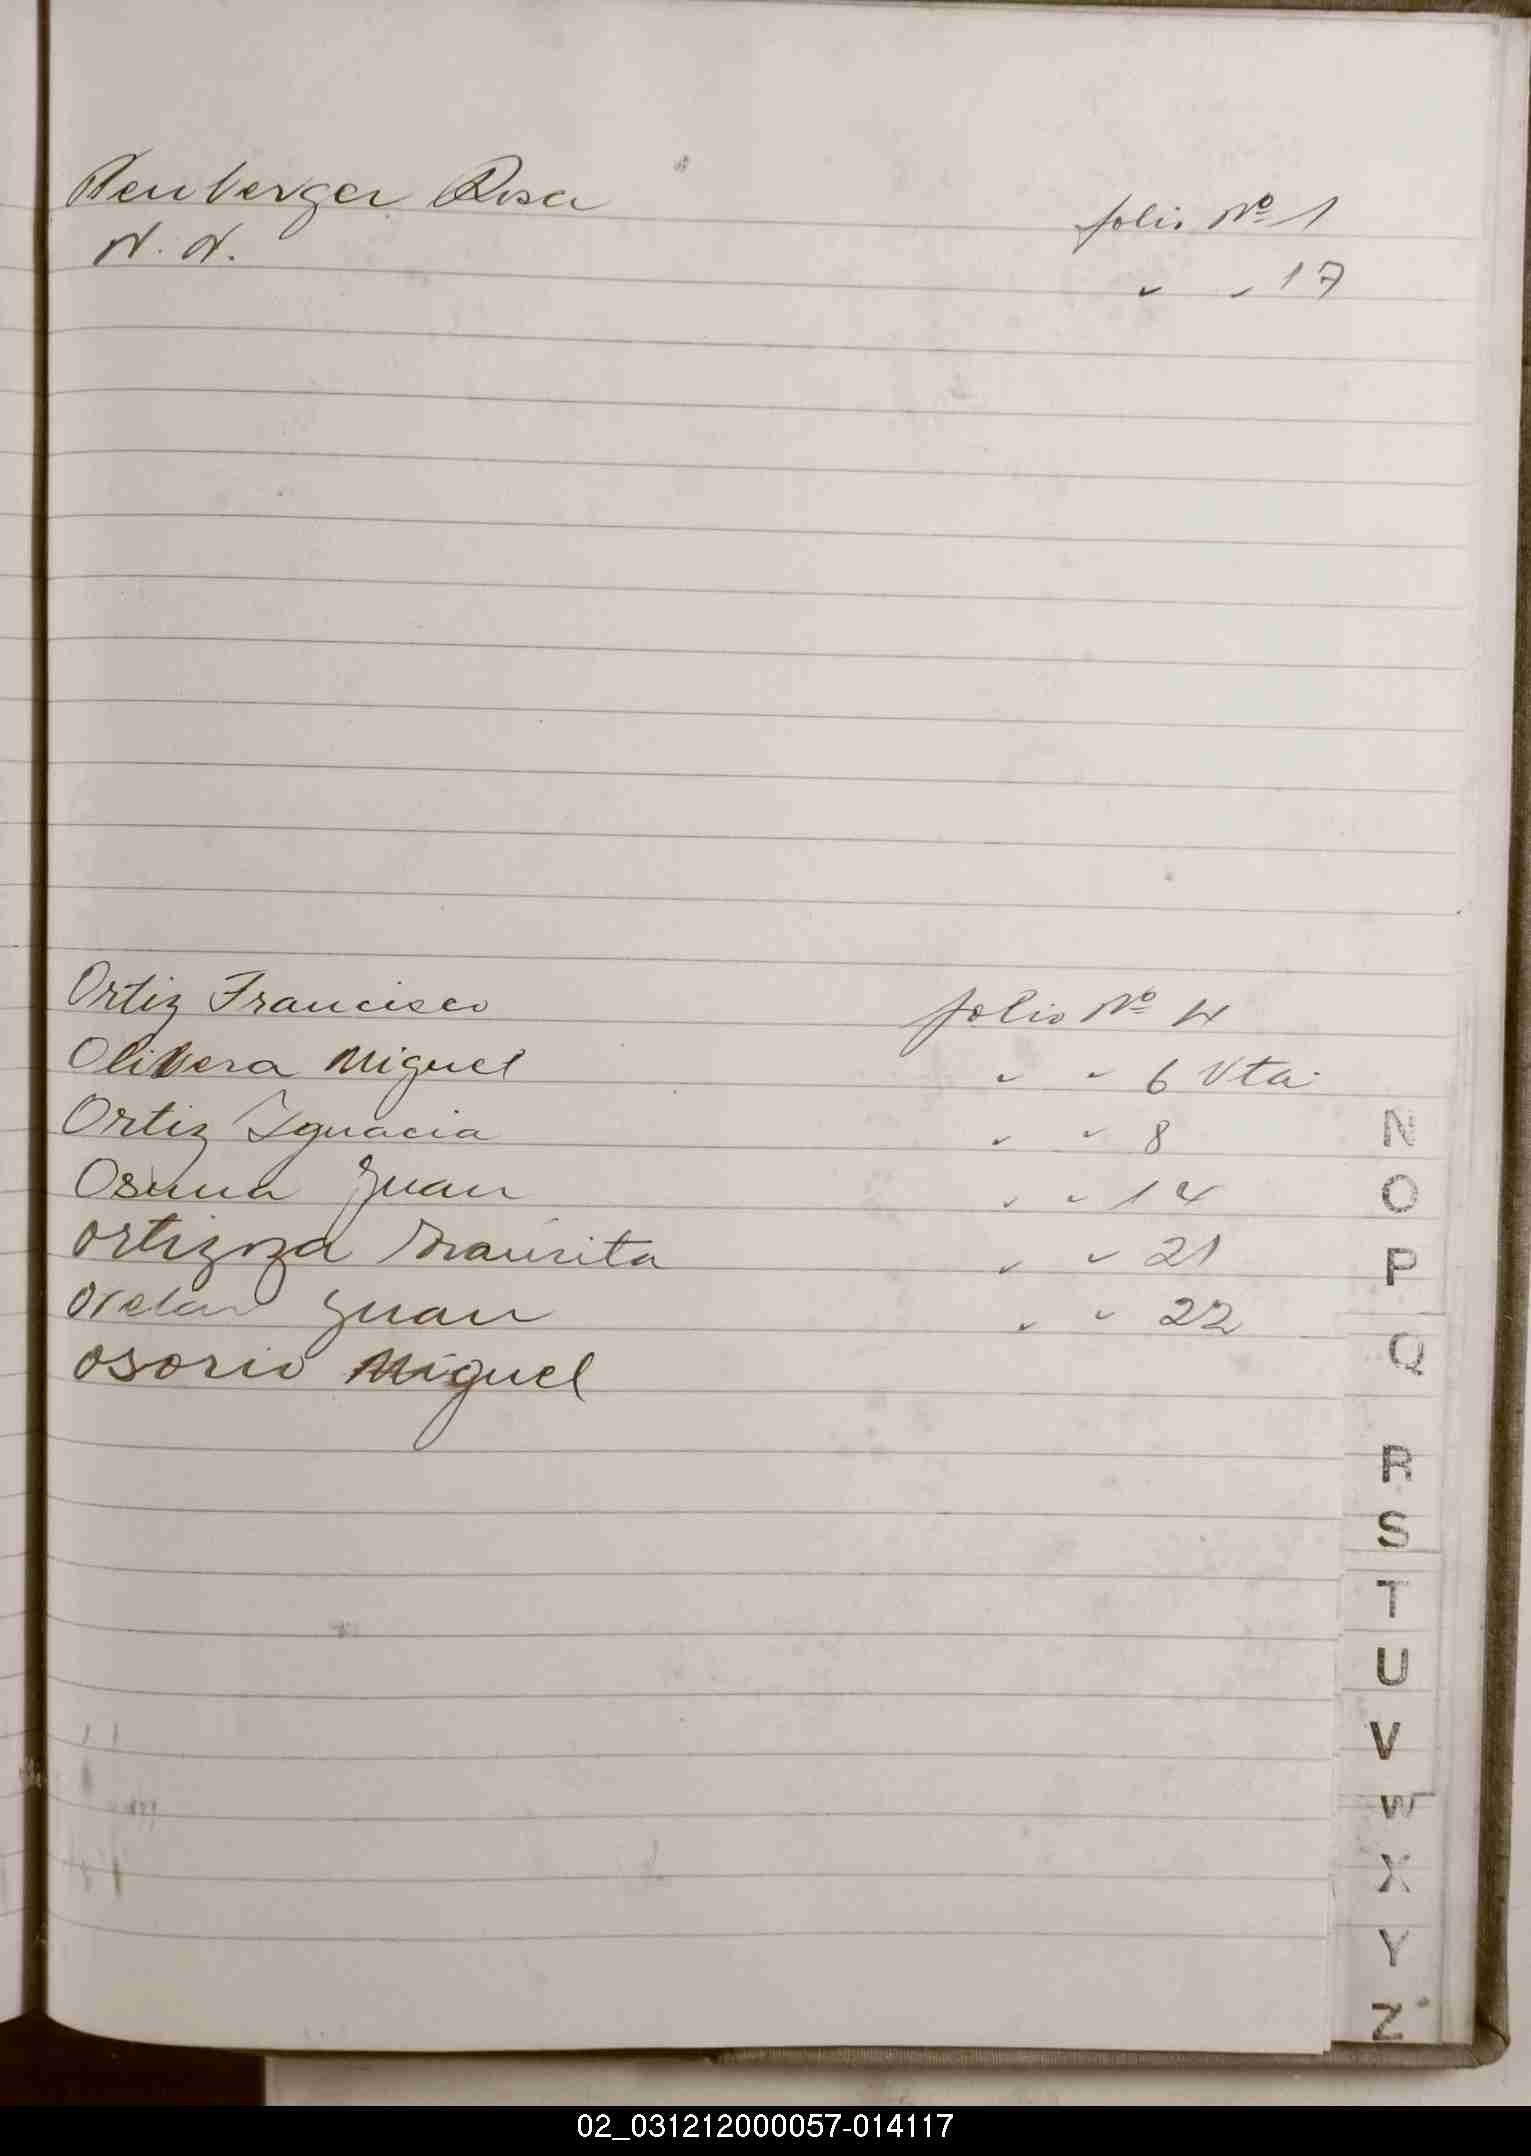 Neuberger Rosa folio Nº 1
N. N. " " 17
Ortiz Francisco folio Nº 4
Olivera Miguel " " 6 Vta.
Ortiz Ignacia " " 8
Osuna Juan " " 14
Juan " " 22
" " 21
Osorio Miguel
N
O
P
Q
R
S
T
U
V
W
X
Y
Z
02_031212000057-014117